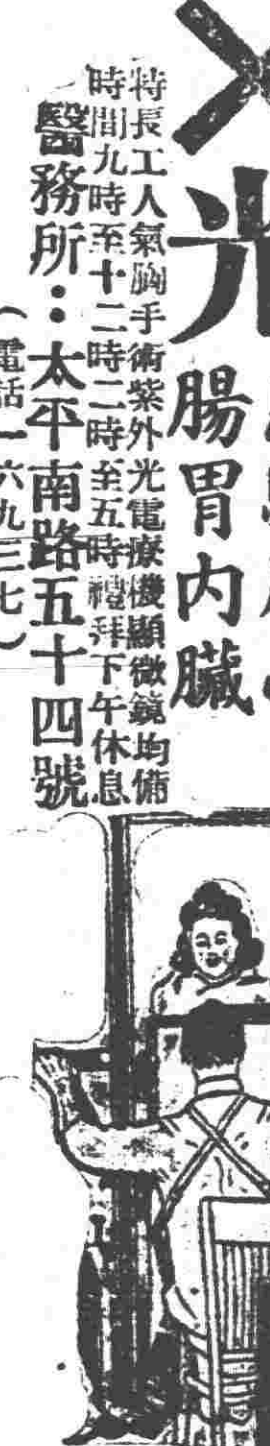 光
腸胃内臟
特長工人氣胸手術紫外光電療機顯微鏡均備
時間九時至十二時二時至五時禮拜下午休息
醫務所：太平南路五十四號
（電話一六九三七）